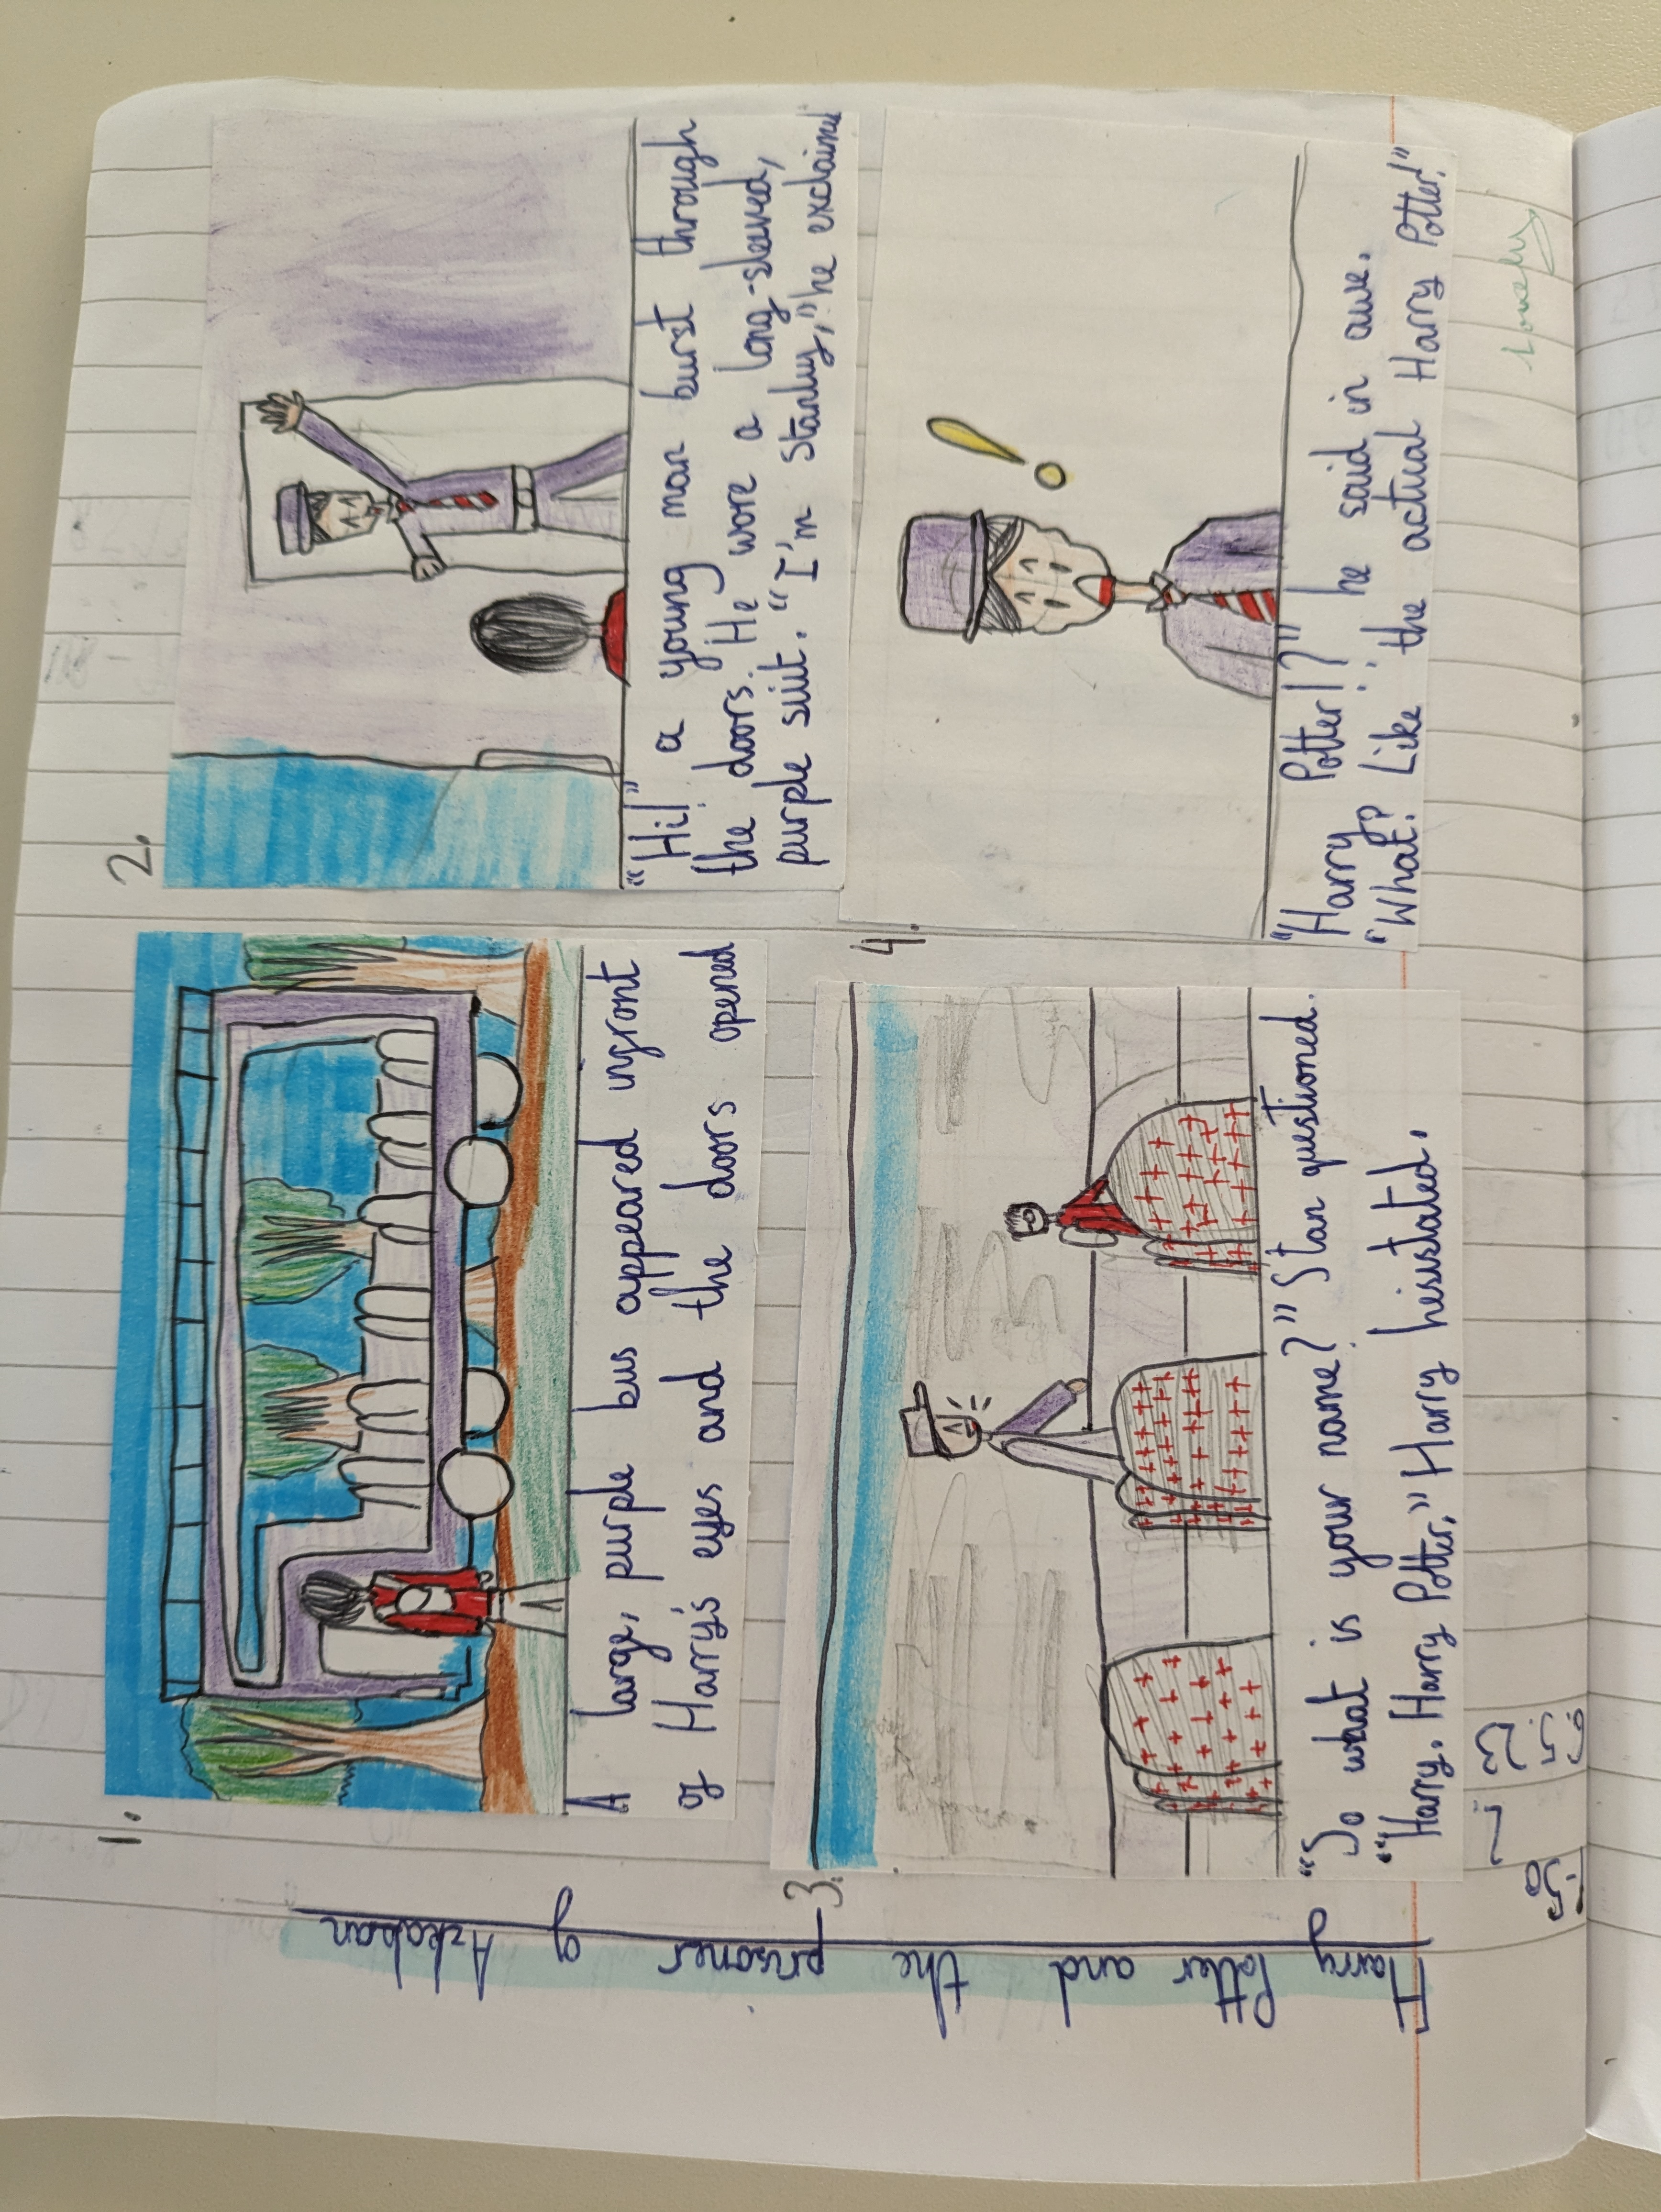 Harry Potter and the prisoner of Azkaban
1.
A large, purple bus appeared infront
of Harry's eyes and the doors opened
2.
"Hi!" a young man burst through
the doors. He wore a long-sleaved,
purple suit. "I'm Stanley," he exclaimed
3.
"So what is your name?" Stan questioned.
"Harry. Harry Potter," Harry hesistated.
4.
"Harry Potter!?" he said in awe.
"What? Like the actual Harry Potter!"
Lovely
6.5.23